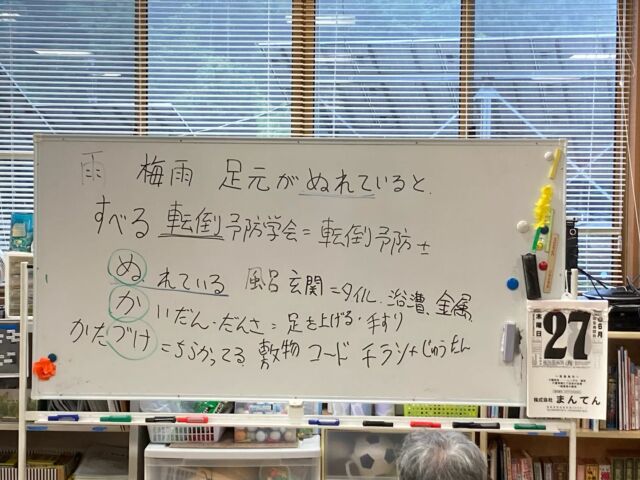 雨 梅雨 足元がぬれていると、
すべる 転倒予防学会=転倒予防士
ぬれている 風呂 玄関=タイル、浴槽、金属、
かいだん・だんさ=足を上げる・手すり
かたづけ=ちらかってる 敷物 コード チラシ+じゅうたん
6月
27
木曜日
株式会社 まんてん